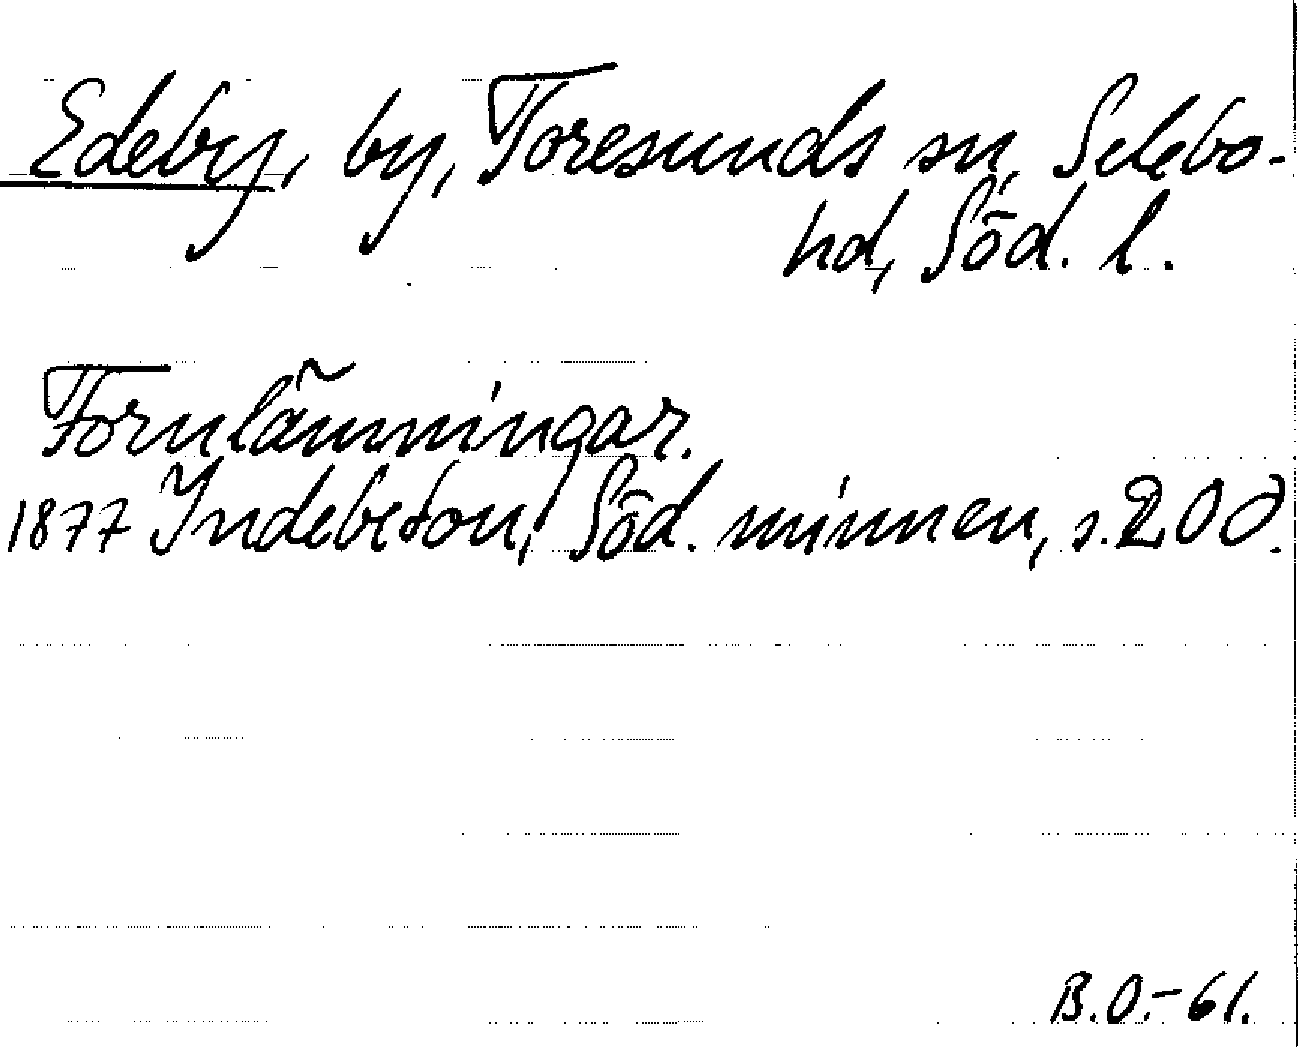 Edeby, by, Toresunds sn, Selebo-
hd, Söd. l.
Fornlämningar.
1877 Indebetou, Söd. minnen, s. 200.
B.O.-61.